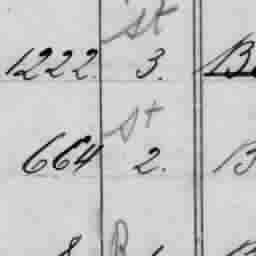 st
1222. 3.
st
664 2.